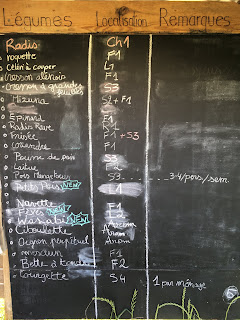 Légumes Localisation Remarques
Radis Ch1
roquette F1
Céleri à couper L7
Cresson alénois F1
Cresson à grandes feuilles S3
Mizuna S2 + F1
Epinard F1
Radis Rave
Frisée F1 + S3
Coriandre F1
Pousse de pois S3
Laitue F2
Pois Mangetout S9 3-4/pers/sem
Petits Pois NEW 1
Navette F1
Fèves NEW F2
Wasabi NEW Arom
Ciboulette Arom
Oignon perpétuel Arom
F1
Bette à tondre F2
Courgette S4 1 par ménage